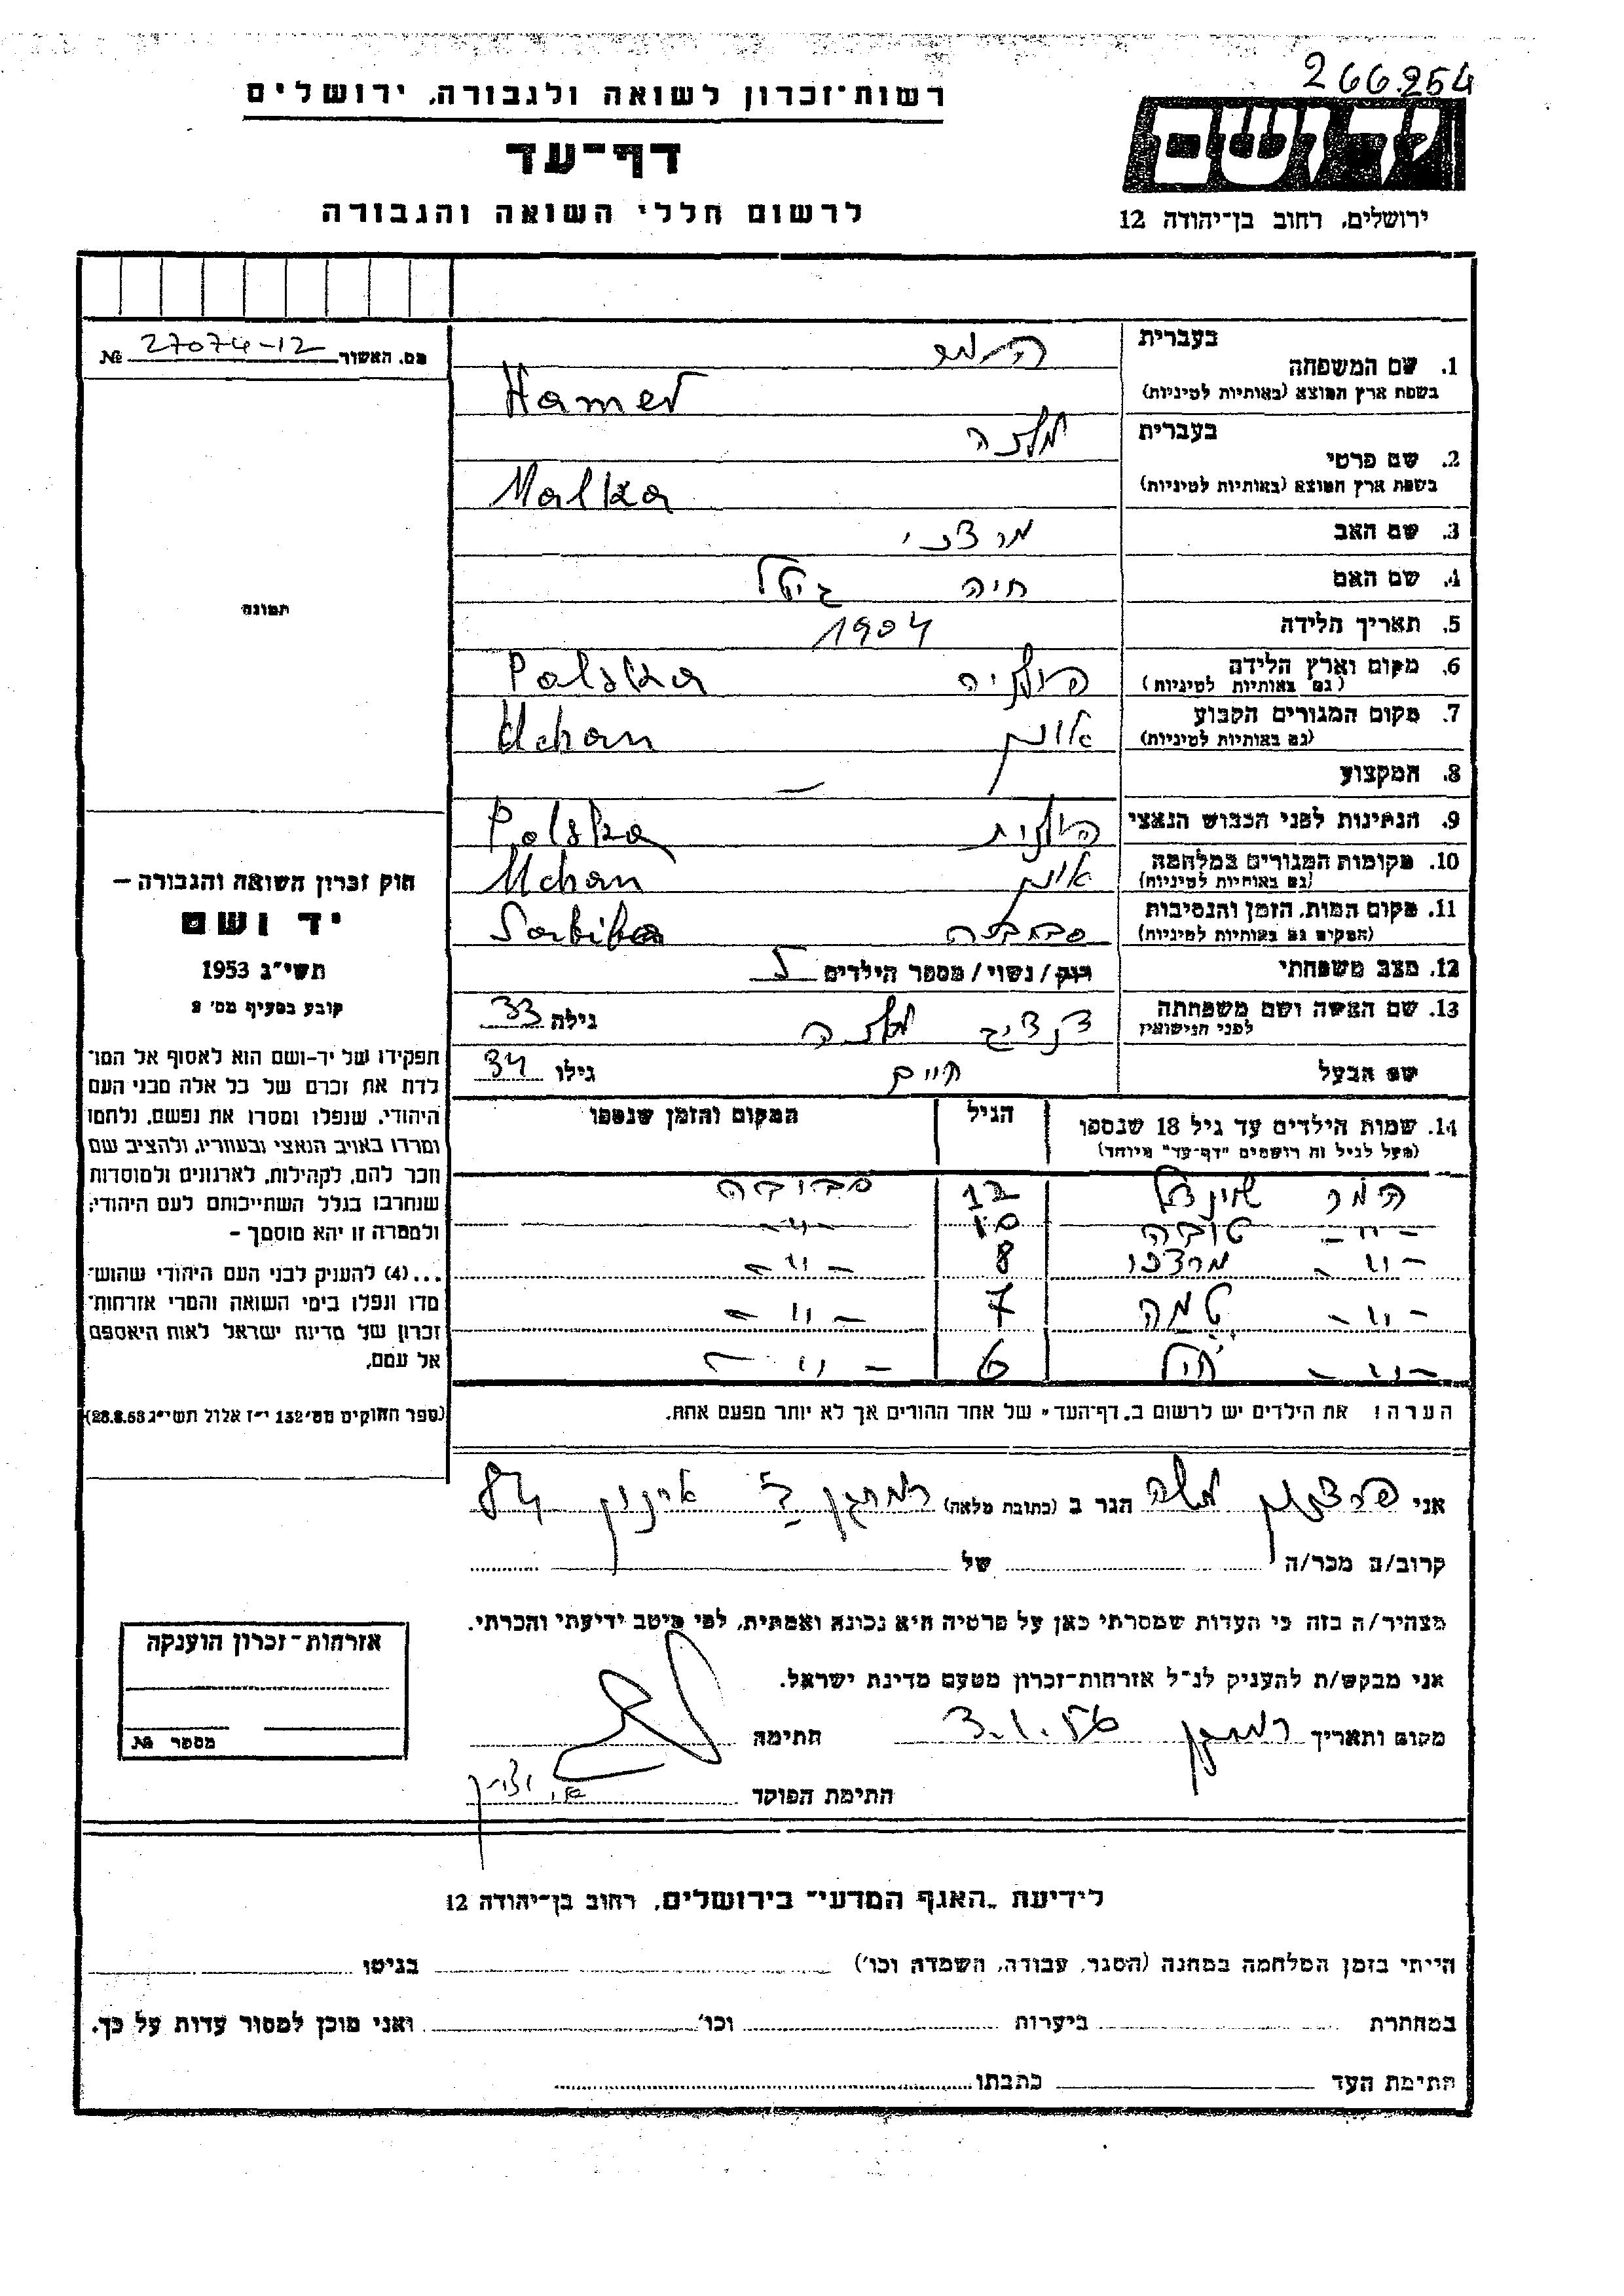 266.254
רשות־זכרון לשואה ולגבורה, ירושלים
יד ושם
דף־עד
לרשום חללי השואה והגבורה
ירושלים, רחוב בן־יהודה 12
מס. האשור 27074-12 №
בעברית
1. שם המשפחה
בשפת ארץ המוצא (באותיות לטיניות) Hamer
בעברית מלכה
2. שם פרטי
בשפת ארץ המוצא (באותיות לטיניות) Malka
3. שם האב מרדכי
4. שם האם חיה גיטל
5. תאריך הלידה 1904
6. מקום וארץ הלידה פולניה Polska
(גם באותיות לטיניות)
7. מקום המגורים הקבוע Uchan
(גם באותיות לטיניות)
8. המקצוע —
9. הנתינות לפני הכבוש הנאצי פולנית Polska
10. מקומות המגורים במלחמה Uchan
(גם באותיות לטיניות)
11. מקום המות, הזמן והנסיבות
(המקום גם באותיות לטיניות)
12. מצב משפחתי רווק/נשוי/מספר הילדים 5
13. שם האשה ושם משפחתה מלכה גילה 33
לפני הנישואין
שם הבעל חיים גילו 34
14. שמות הילדים עד גיל 18 שנספו הגיל המקום והזמן שנספו
(מעל לגיל זה רושמים "דף־עד" מיוחד)
המר שינדל 12 סבובה
—"— טובה 10 —"—
—"— מרדכי 8 —"—
—"— 7 —"—
—"— רחל 6 —"—
הערה: את הילדים יש לרשום ב„דף־העד" של אחד ההורים אך לא יותר מפעם אחת.
תמונה
חוק זכרון השואה והגבורה —
יד ושם
תשי"ג 1953
קובע בסעיף מס' 2
תפקידו של יד־ושם הוא לאסוף אל המו־
לדת את זכרם של כל אלה מבני העם
היהודי, שנפלו ומסרו את נפשם, נלחמו
ומרדו באויב הנאצי ובעוזריו, ולהציב שם
וזכר להם, לקהילות, לארגונים ולמוסדות
שנחרבו בגלל השתייכותם לעם היהודי;
ולמטרה זו יהא מוסמך –
...(4) להעניק לבני העם היהודי שהוש־
מדו ונפלו בימי השואה והמרי אזרחות־
זכרון של מדינת ישראל לאות היאספם
אל עמם.
(ספר החוקים מס' 132 י"ז אלול תשי"ג 28.8.53)
אני הגר ב (כתובת מלאה) 84
קרוב/ה מכר/ה של
מצהיר/ה בזה כי העדות שמסרתי כאן על פרטיה היא נכונה ואמתית, לפי מיטב ידיעתי והכרתי.
אני מבקש/ת להעניק לנ"ל אזרחות־זכרון מטעם מדינת ישראל.
מקום ותאריך 3.1.56 חתימה
חתימת הפוקד
אזרחות־זכרון הוענקה
מספר №
לידיעת „האגף המדעי" בירושלים, רחוב בן־יהודה 12
הייתי בזמן המלחמה במחנה (הסגר, עבודה, השמדה וכו') בגיטו
במחתרת ביערות וכו' ואני מוכן למסור עדות על כך.
חתימת העד כתבתו